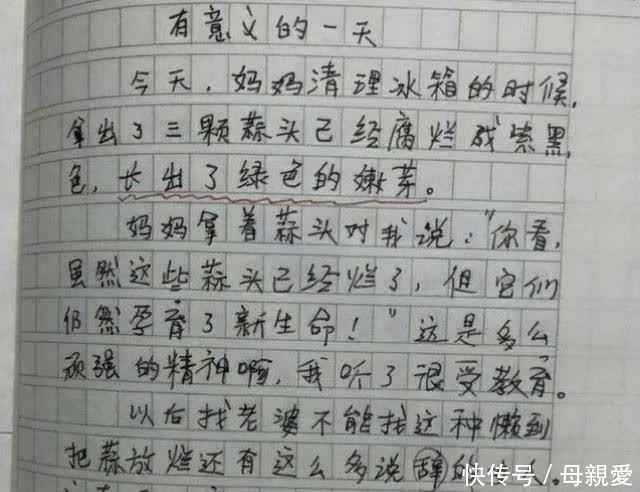 有意义的一天
今天,妈妈清理冰箱的时候,
拿出了三颗蒜头已经腐烂成紫黑
色,长出了绿色的嫩芽。
妈妈拿着蒜头对我说:"你看,
虽然这些蒜头已经烂了,但它们
仍然孕育了新生命!"这是多么
顽强的精神啊,我听了很受教育。
以后找老婆不能找这种懒到
把蒜放烂还有这么多说辞的
快传号/母親愛